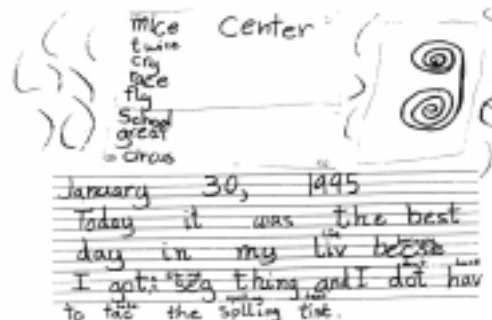 mice center
twice
cry
race
fly
School
great
circus
January 30, 1995
Today it was the best
day in my liv becse
I got thing and I dot hav
to tac the splling tist.